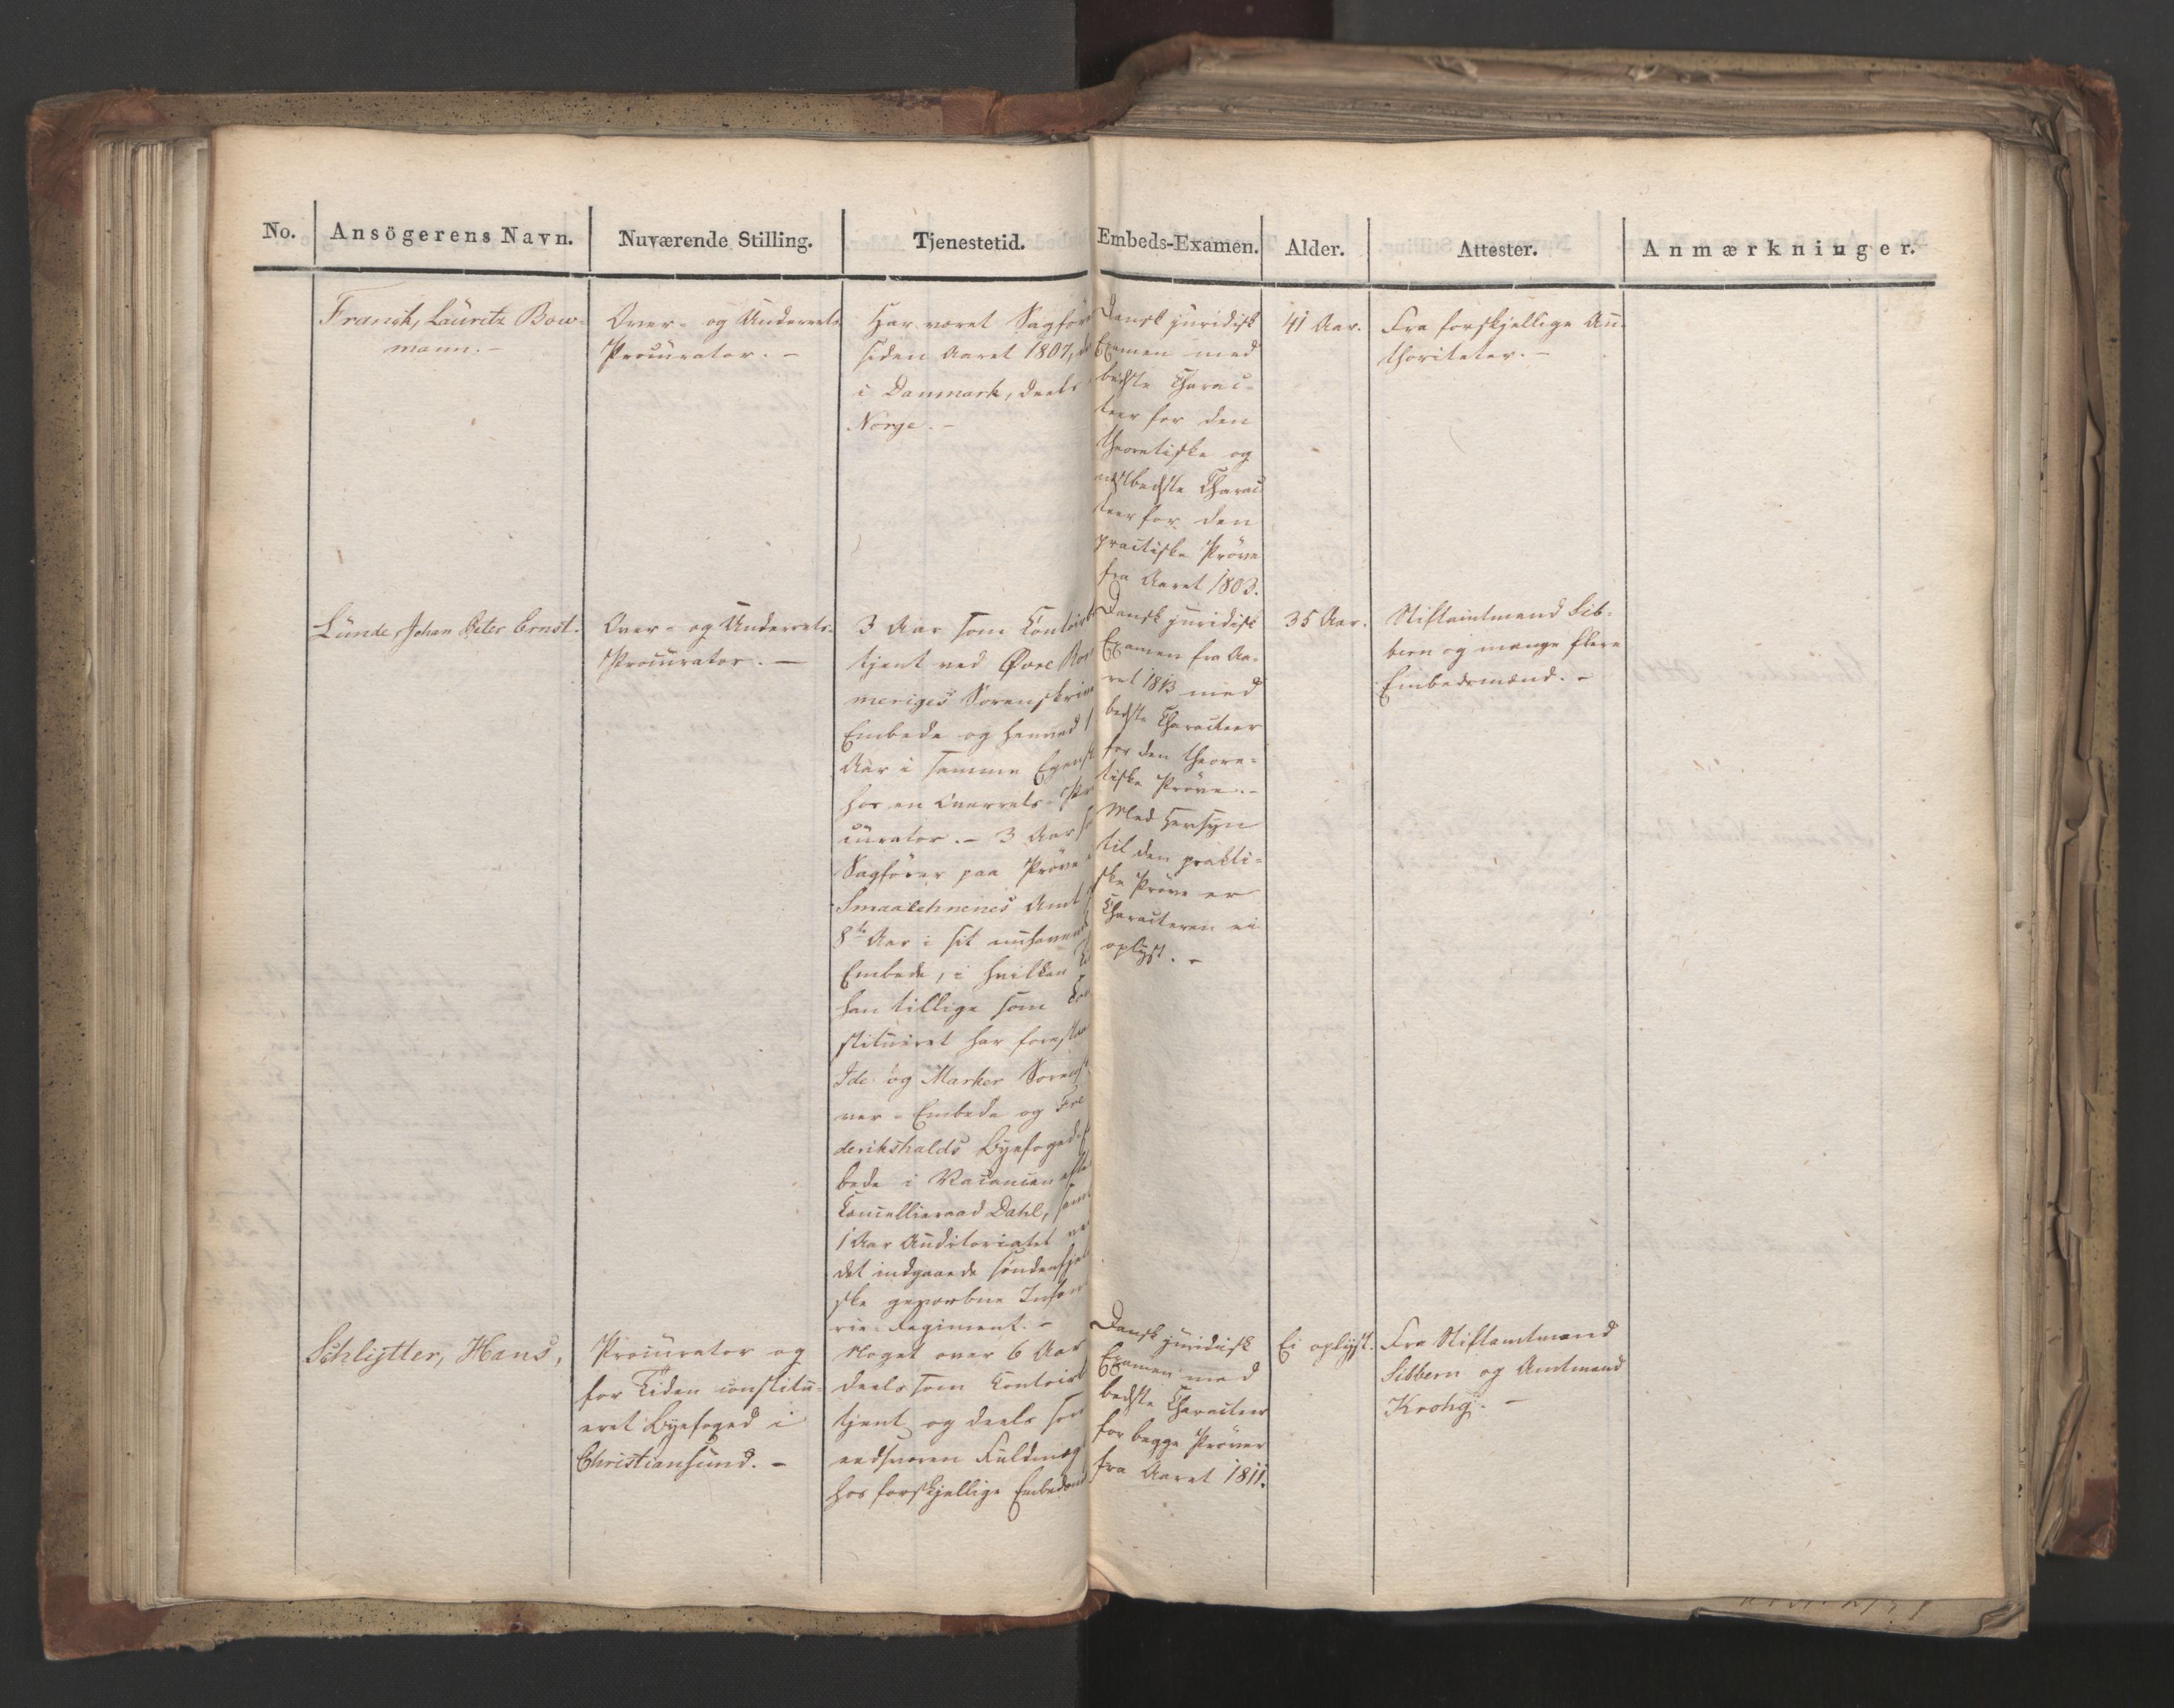 No. Ansögerens Navn. Nuværende Stilling. Tjenestetid. Embeds-Examen. Alder. Attester. Anmærkninger.
Franck, Lauritz Bow-
mann. -
Over- og Underrets-
Procurator. -
Har været Sagför
siden Aaret 1807,
i Danmark, deels
Norge. -
Dansk juridisk
Examen med
bedste Charac-
teer for den
theoretiske og
næstbedste Charac
teer for den
practiske Pröve
fra Aaret 1803.
41 Aar.
Fra forskjellige Au-
thoriteter. -
Lunde, Johan Peter Ernst.
Over- og Underrets-
Procurator. -
3 Aar som Contoirbe
tjent ved Øvre Ro
meriges Sorenskriver
Embede og henved 1
Aar i samme Egensk
hos en Overrets-Pr
curator. - 3 Aar so
Sagförer paa Pröve
Smaalehnenes Amt
8de Aar i sit nuhavende
Embede, i hvilken
han tillige som Con
stitueret har forestaae
Ide og Marker Sorensk
ver-Embede og Fre
derikshalds Byefoged
bede i Vacancen efte
Cancellieraad Dahl, samt
1 Aar Auditoriatet ve
det indgaaede söndenfjel
ske gevorbne Infan
rie-Regiment. -
Dansk juridisk
Examen fra Aa-
ret 1813 med
bedste Characteer
for den theore-
tiske Pröve. -
Med Hensyn
til den prakti-
ske Pröve er
Characteren ei
oplyst. -
35 Aar.
Stiftamtmand Sib-
bern og mange flere
Embedsmænd. -
Schlytter, Hans,
Procurator og
for Tiden constitu-
eret Byefoged i
Christiansund. -
Noget over 6 Aar
deels som Contoirb
tjent og deels som
eedsvoren Fuldmæg
hos forskjellige Embedsm
Dansk juridisk
Examen med
bedste Characteer
for begge Pröver
fra Aaret 1811.
Ei oplyst.
Fra Stiftamtmand
Sibbern og Amtmand
Krohg. -